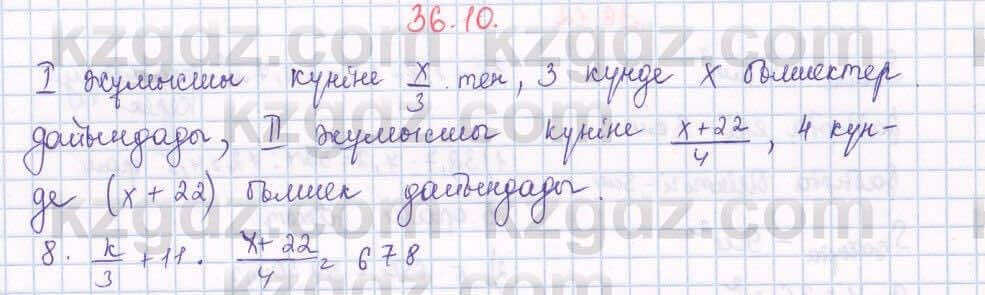 36.10.
I жұмысшы күніне x/3 тен, 3 күнде x бөлшектер
дайындады, II жұмысшы күніне x+22/4, 4 күн-
де (x + 22) бөлшек дайындады.
8 · x/3 + 11 · x+22/4 = 678
kzgdz.com